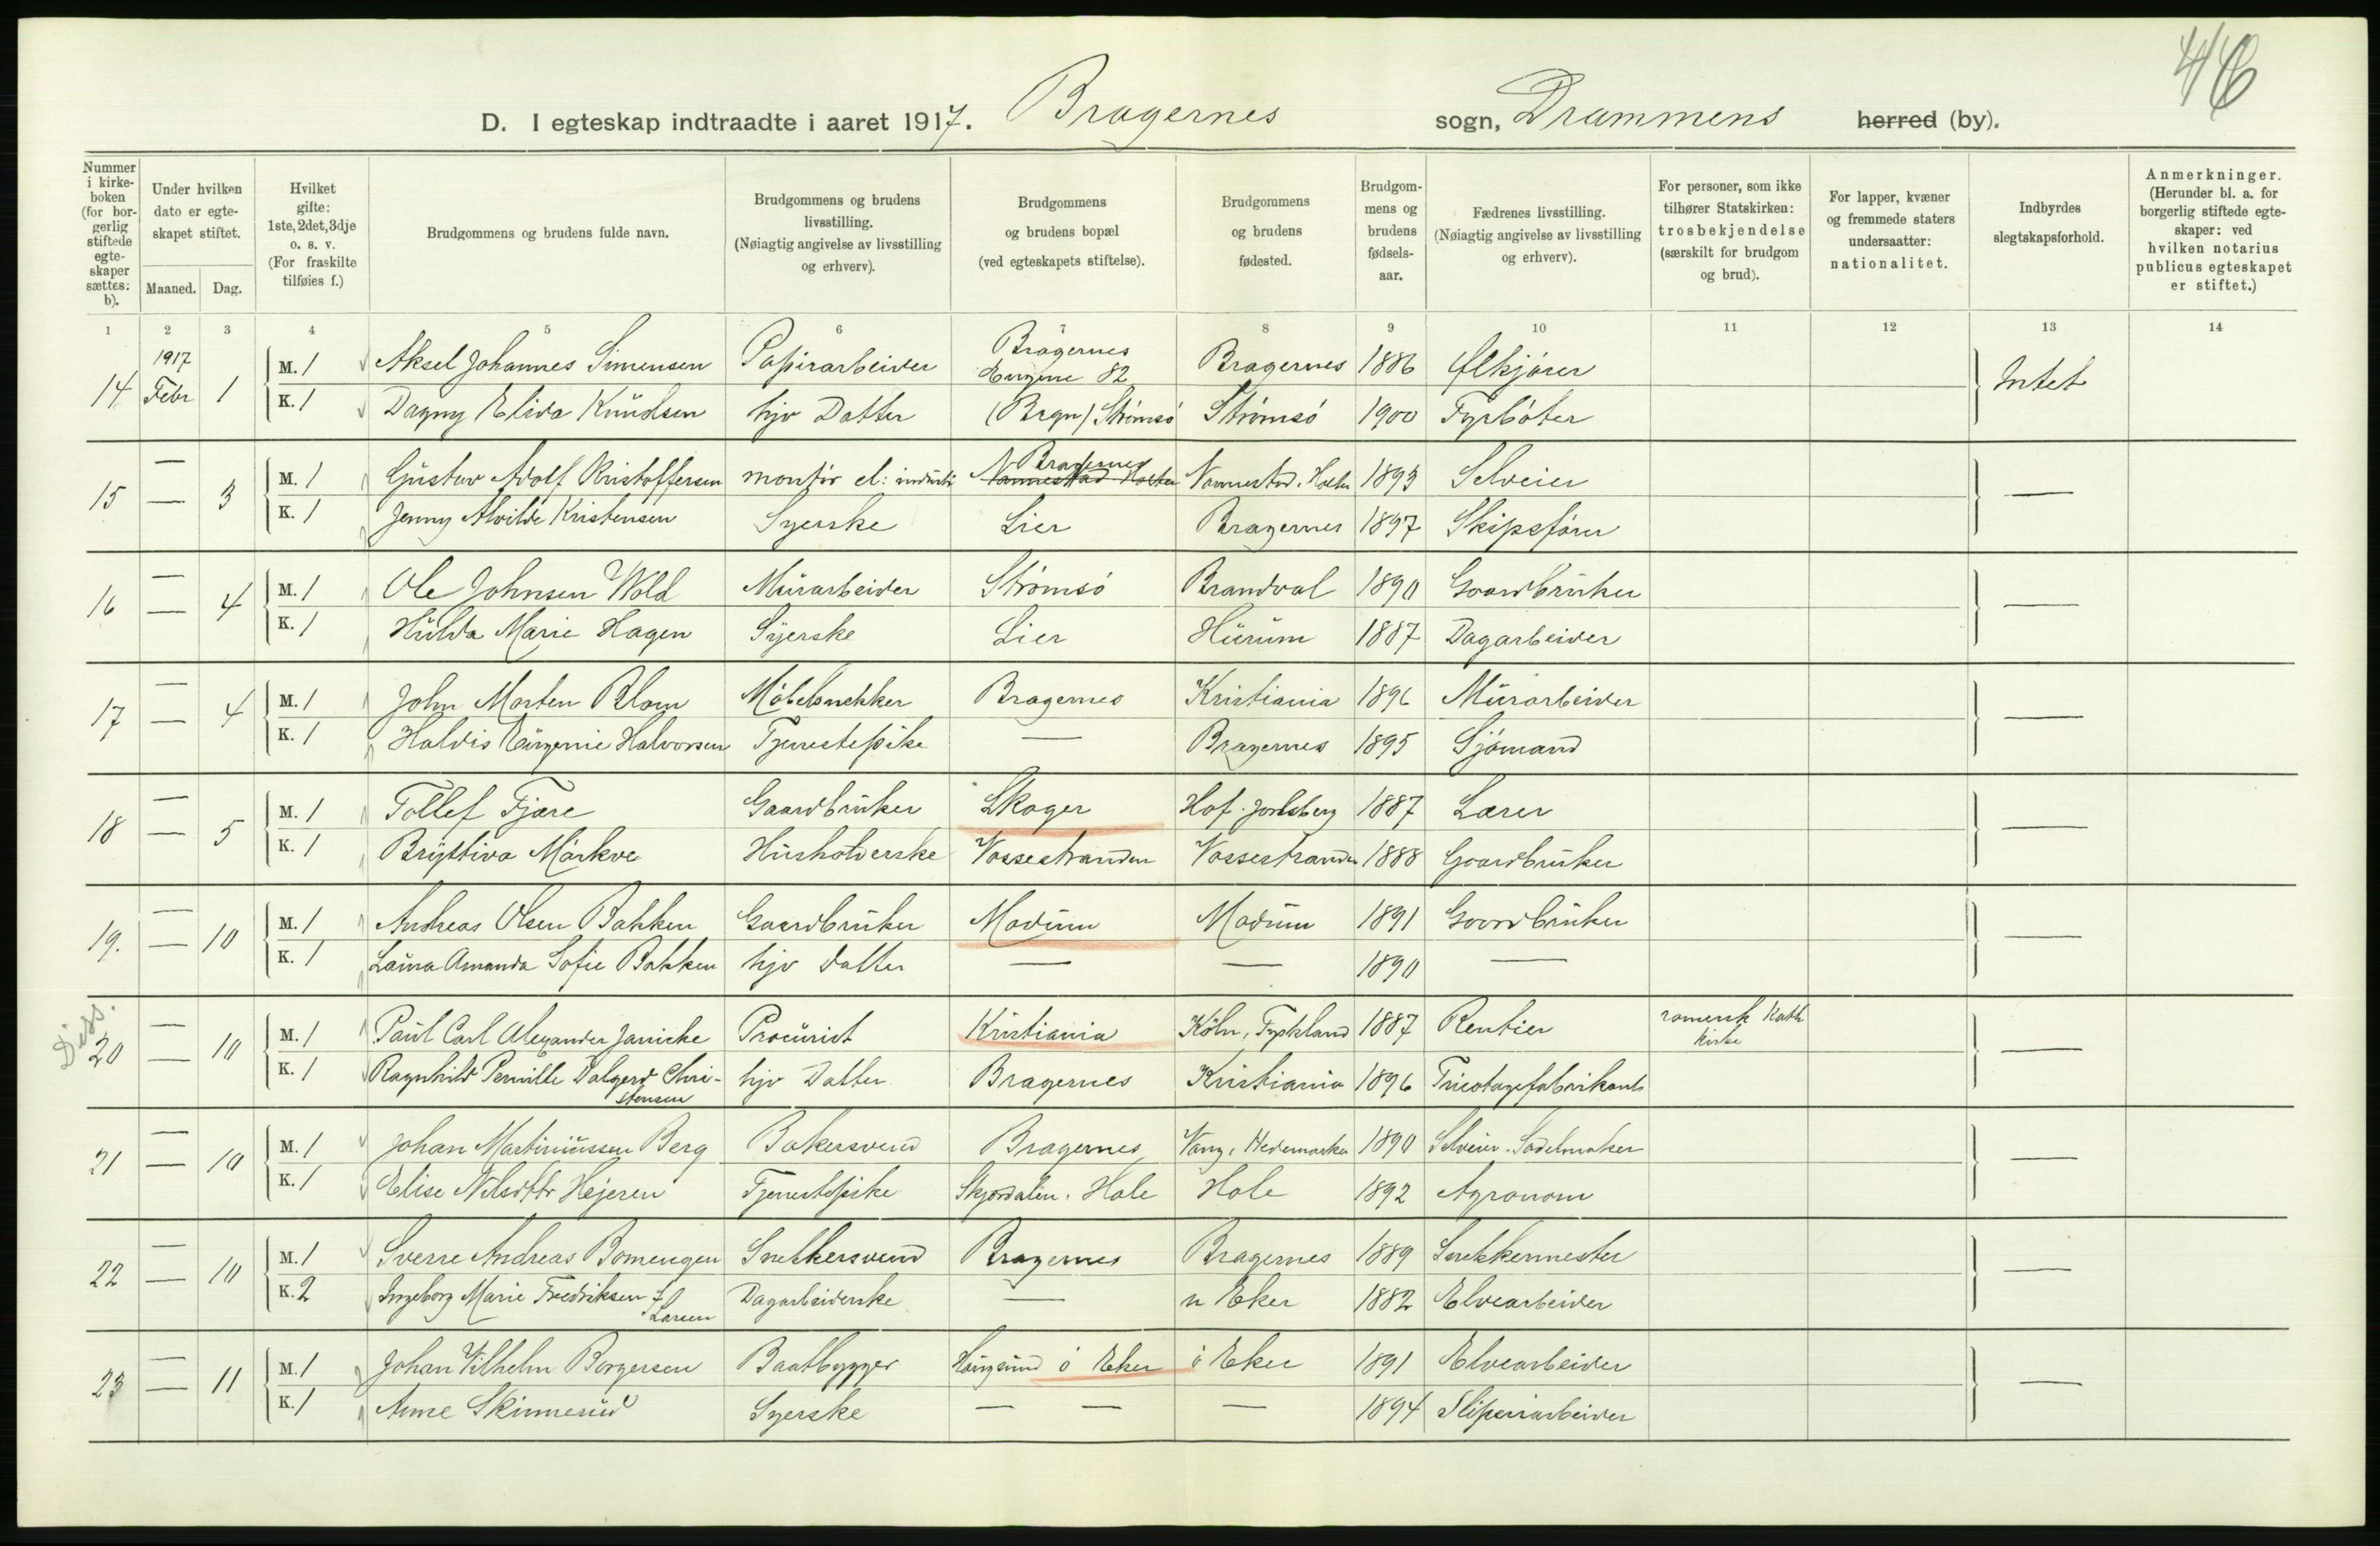 46
D. I egteskap indtraadte i aaret 1917. Bragernes sogn, Drammens herred (by).
Nummer i kirke- boken (for bor- gerlig stiftede egte- skaper sættes: b).
Under hvilken dato er egte- skapet stiftet.
Maaned. Dag.
Hvilket gifte: 1ste, 2det, 3dje o. s. v. (For fraskilte tilføies f.)
Brudgommens og brudens fulde navn.
Brudgommens og brudens livsstilling. (Nøiagtig angivelse av livsstilling og erhverv).
Brudgommens og brudens bopæl (ved egteskapets stiftelse).
Brudgommens og brudens fødested.
Brudgom- mens og brudens fødsels- aar.
Fædrenes livsstilling. (Nøiagtig angivelse av livsstilling og erhverv).
For personer, som ikke tilhører Statskirken: trosbekjendelse (særskilt for brudgom og brud).
For lapper, kvæner og fremmede staters undersaatter: nationalitet.
Indbyrdes slegtskapsforhold.
Anmerkninger. (Herunder bl. a. for borgerlig stiftede egte- skaper: ved hvilken notarius publicus egteskapet er stiftet.)
1 2 3 4 5 6 7 8 9 10 11 12 13 14
1917
14 Febr 1 M. 1 Aksel Johannes Simensen Papirarbeider Bragernes Engene 82 Bragernes 1886 Ølkjører Intet
K. 1 Dagny Elida Knudsen hjv Datter (Bragn) Strømsö Strömsö 1900 Fyrböter
15 — 3 M. 1 Gustav Adolf Kristoffersen montör el: industri Bragernes Nannestad Holter Nannestad. Holter 1893 Selveier —
K. 1 Jenny Alvilde Kristensen Syerske Lier Bragernes 1897 Skipsfører
16 — 4 M. 1 Ole Johnsen Wold Murarbeider Strömsö Brandval 1890 Gaardbruker —
K. 1 Hulda Marie Hagen Syerske Lier Hurum 1887 Dagarbeider
17 — 4 M. 1 John Morten Blom Möbelsnekker Bragernes Kristiania 1896 Murarbeider —
K. 1 Haldis Eugenie Halvorsen Tjenestepike — Bragernes 1895 Sjömand
18 — 5 M. 1 Tollef Fjære Gaardbruker Skoger Hof. Jarlsberg 1887 Lærer —
K. 1 Bryttiva Mörkve Husholderske Vossestranden Vossestranden 1888 Gaardbruker
19. — 10 M. 1 Andreas Olsen Bakken Gaardbruker Modum Modum 1891 Gaardbruker —
K. 1 Laura Amanda Sofie Bakken hjv datter — — 1890 —
Diss.
20 — 10 M. 1 Paul Carl Alexander Janicke Procurist Kristiania Köln, Tyskland 1887 Rentier romersk Kath Kirke —
K. 1 Ragnhild Pernille Dalgerd Chri- stensen hjv Datter Bragernes Kristiania 1896 Tricotagefabrikant
21 — 10 M. 1 Johan Martiniussen Berg Bakersvend Bragernes Vang, Hedemarken 1890 Selveier. Sadelmaker —
K. 1 Elise Nilsdtr Hejeren Tjenestepike Skjordalen. Hole Hole 1892 Agronom
22 — 10 M. 1 Sverre Andreas Bomengen Snekkersvend Bragernes Bragernes 1889 Snekkermester —
K. 2 Ingeborg Marie Fredriksen f. Larsen Dagarbeiderske — n Eker 1882 Elvearbeider
23 — 11 M. 1 Johan Vilhelm Borgersen Baatbygger Hougsund ö Eker ö Eker 1891 Elvearbeider —
K. 1 Anne Skinnerud Syerske — — — 1894 Sliperiarbeider